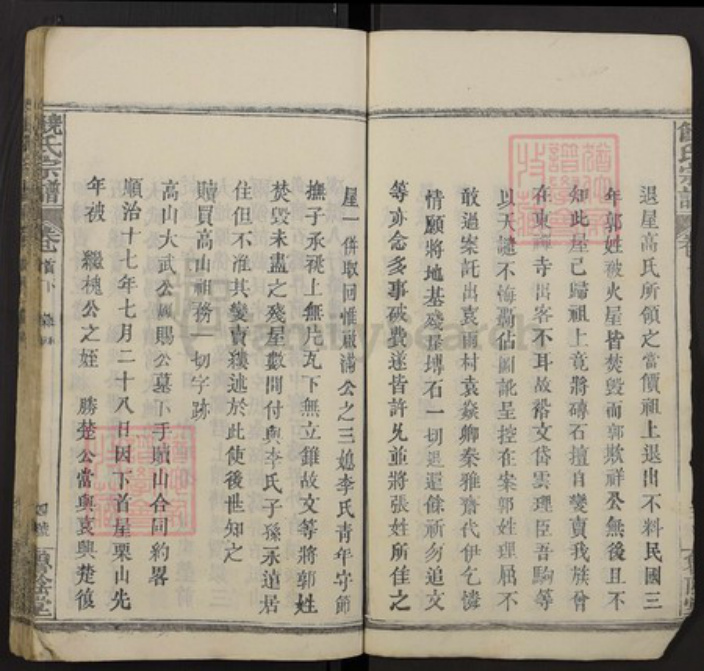 饒氏宗譜
退屋高氏所領之當價祖上退出不料民國三
年郭姓被火屋皆焚毀而郭欺祥公無後且不
知此屋已歸祖上竟將磚石擅自變賣我族曾
在東禪寺出客不耳故裕文岱雲理臣吾駒等
以天譴不悔霸佔圖訛呈控在案郭姓理屈不
敢過案託出袁雨村袁焱卿秦雅齋代伊乞憐
情愿將地基殘屋磚石一切退還餘祈勿追文
等亦念多事破費遂皆許允並將張姓所住之
屋一併取回惟祿滿公之三媳李氏青年守節
撫子承祧上無片瓦下無立錐故文等將郭姓
焚毀未盡之殘屋數間付與李氏子孫永遠居
住但不准其變賣縷述於此使後世知之
贖買高山祖務一切字跡
高山大武公鳳賜公墓下手贖山合同約畧
順治十七年七月二十八日因下首屋栗山先
年被 繼槐公之姪 勝楚公當與袁與楚後
饒氏宗譜 卷首下